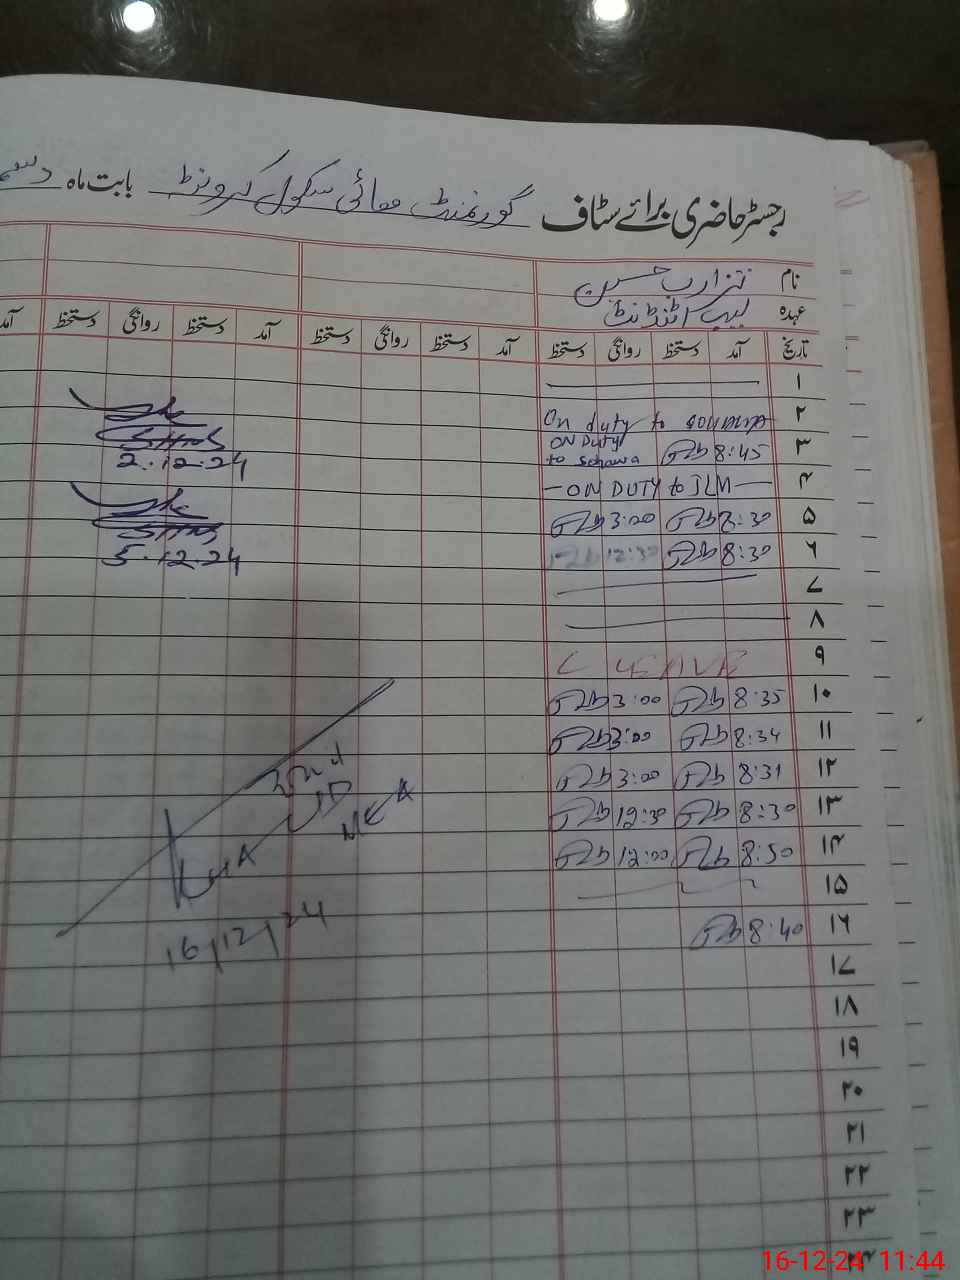 رجسٹر حاضری برائے سٹاف گورنمنٹ ہائی سکول بابت ماہ
نام حسین
عہدہ لیب اٹنڈنٹ
تاریخ آمد دستخط روانگی دستخط آمد دستخط روانگی دستخط آمد دستخط روانگی دستخط آمد
۱
۲ On duty to sohawa
۳ 8:45 ON Duty to Sohawa
۴ ON DUTY to JLM
۵ 8:30 3:00
۶ 8:30 12:30
۷
۸
۹ C LEAVE
۱۰ 8:35 3:00
۱۱ 8:34 3:00
۱۲ 8:31 3:00
۱۳ 8:30 12:30
۱۴ 8:50 12:00
۱۵
۱۶ 8:40
۱۷
۱۸
۱۹
۲۰
۲۱
۲۲
۲۳
۲۴
2.12.24
5.12.24
MEA
16/12/24
16-12-24 11:44